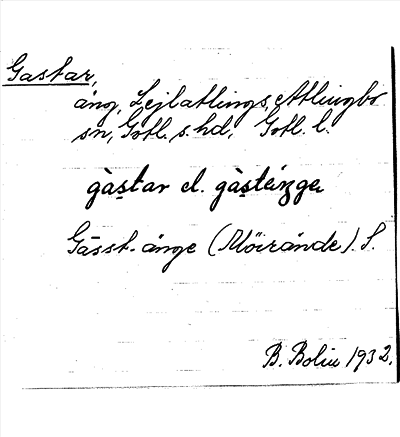 Gastar,
äng, Lejlatlings, Atlingbo
sn, Gotl. s. hd, Gotl. l.
gàs̱tar el. gàs̱täŋge
Gässt-änge (Möirände). S.
B. Bolin 1932.